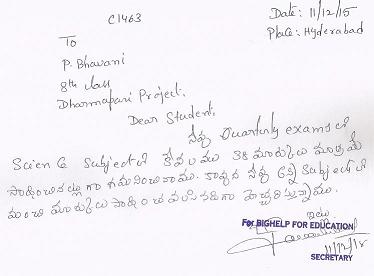 C1463
Date: 11/12/15
Place: Hyderabad
To
P. Bhavani
8th class
Dharmapuri Project.
Dear Student,
నీవు Quarterly exams లో
Science Subject లో కేవలము 38 మార్కులు మాత్రమే
సాధించినట్లుగా గమనించినాము. కావున నీవు అన్ని Subject లో
మంచి మార్కులు సాధించవలసినదిగా హెచ్చరిస్తున్నాము.
ఇట్లు
For BIGHELP FOR EDUCATION
11/12/15
SECRETARY